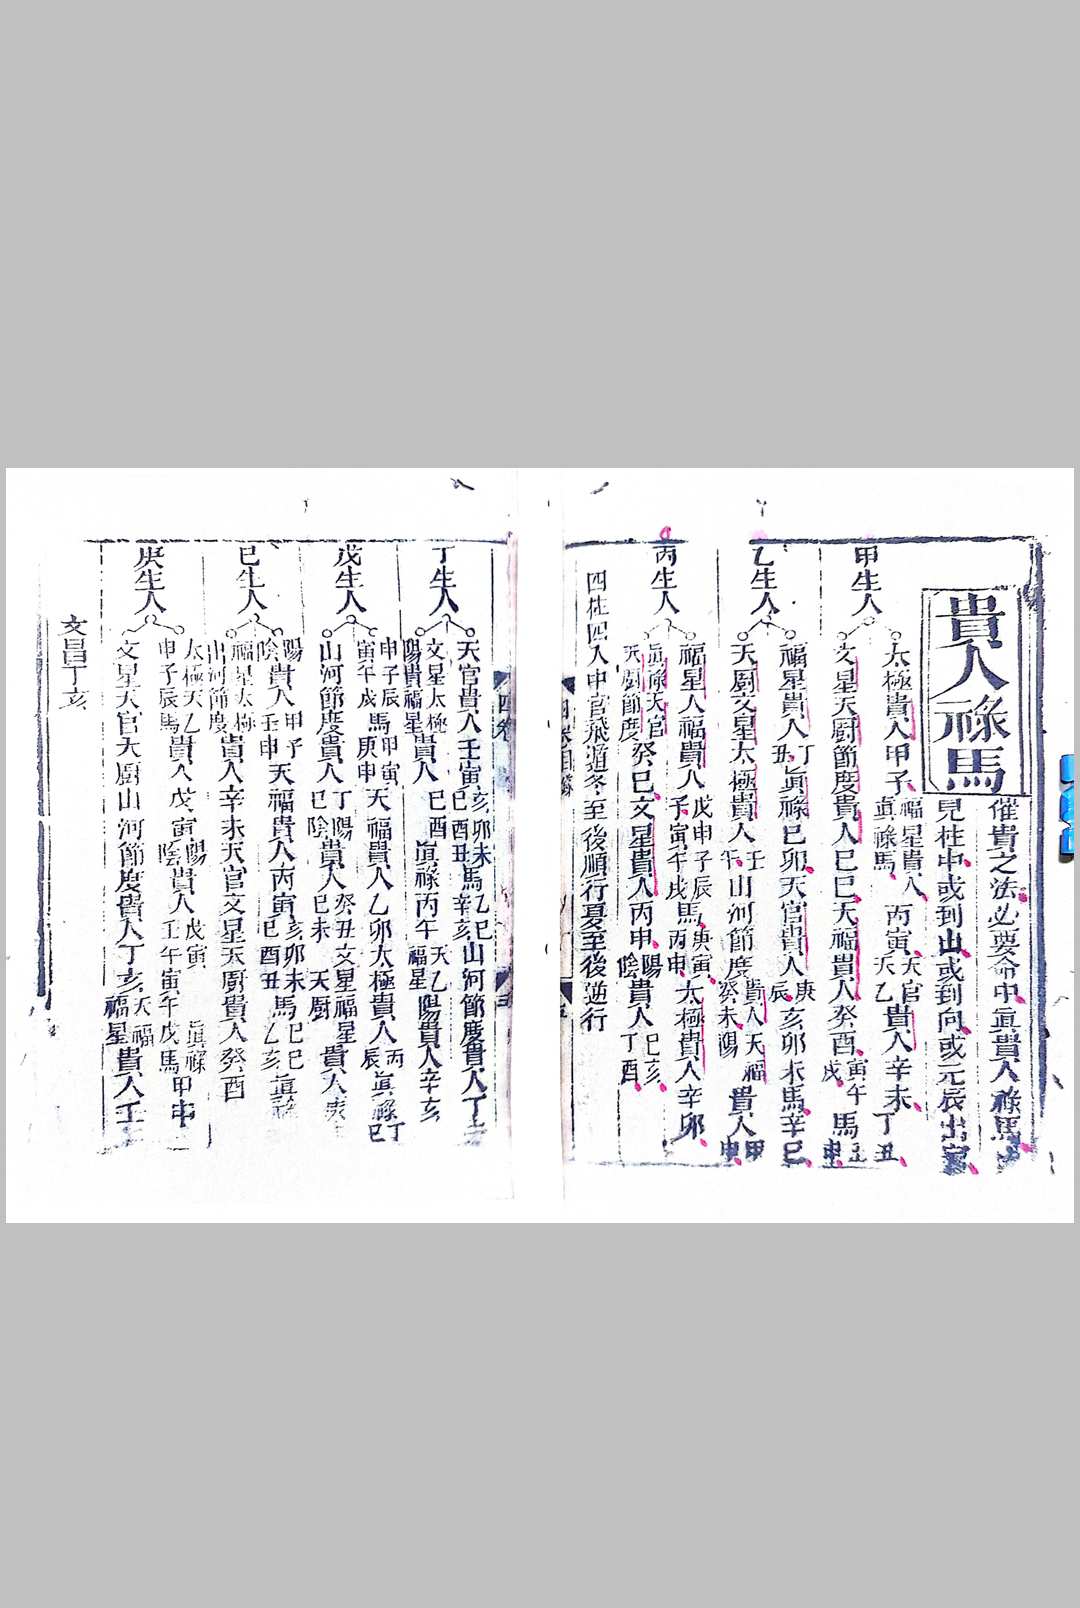 貴人祿馬
催貴之法必要命中眞貴人祿馬
見柱中或到山或到向或元辰出宮
甲生人
太極貴人甲子福星貴人眞祿馬丙寅天官天乙貴人辛未丁丑
文星天厨節度貴人己巳天福貴人癸酉寅午戌馬壬申
乙生人
福星貴人丁丑眞祿己卯天官貴人庚辰亥卯未馬辛巳
天厨文星太極貴人壬午山河節度貴人癸未陽天福貴人甲申
丙生人
福星人福貴人戊子寅申子辰馬庚寅丙申太極貴人辛卯
眞祿天官天厨節度癸巳文星貴人丙申陽陰貴人己亥丁酉
四柱四入中宮飛遁冬至後順行夏至後逆行
四卷
丁生人
天官貴人壬寅亥卯未巳酉丑馬乙巳辛亥山河節度貴人丁
文星太極陽貴福星貴人己酉眞祿丙午天乙福星陽貴人辛亥
戊生人
申子辰寅午戌馬甲寅庚申天福貴人乙卯太極貴人丙辰眞祿丁巳
山河節度貴人丁巳陽陰貴人癸丑己未文星福星天厨貴人庚
己生人
陽陰貴人甲子壬申天福貴人丙寅亥卯未巳酉丑馬己巳乙亥眞祿
福星太極山河節度貴人辛未天官文星天厨貴人癸酉
庚生人
太極天乙申子辰馬貴人戊寅陽陰貴人戊寅壬午寅午戌馬眞祿甲申
文星天官天厨山河節度貴人丁亥天福福星貴人壬
文昌丁亥